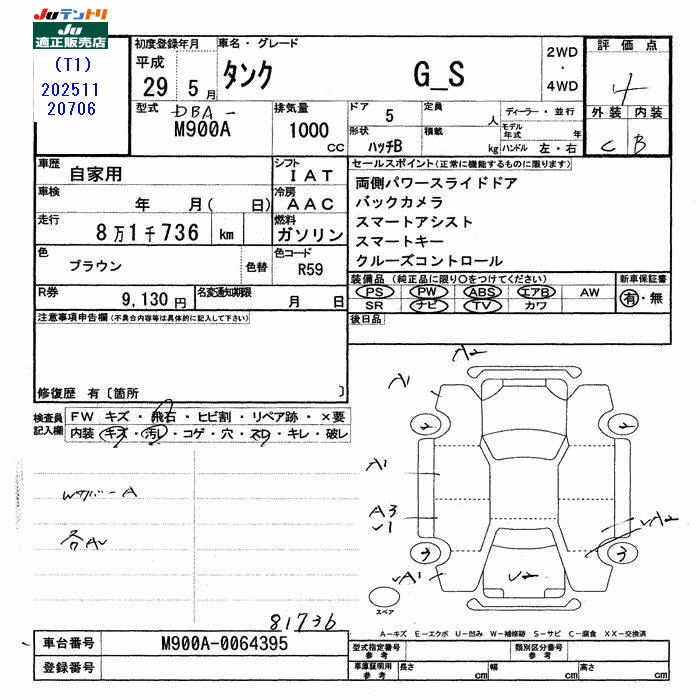 Juテントリ
Ju
適正販売店
(T1)
202511
20706
初度登録年月
平成
29 5月
車名・グレード
タンク G_S
2WD
・
4WD
評価点
4
外装 内装
C B
型式 DBA-
M900A
排気量
1000 CC
ドア 5
定員 人
ディーラー・並行
形状 ハッチB
積載 kg
モデル年式 年
ハンドル 左・右
車歴 自家用
シフト IAT
車検 年 月( 日)
冷房 AAC
走行 8万1千736 km
燃料 ガソリン
色 ブラウン 色替
色コード R59
R券 9,130円
名変通知期限 月 日
セールスポイント(正常に機能するものに限ります)
両側パワースライドドア
バックカメラ
スマートアシスト
スマートキー
クルーズコントロール
装備品(純正品に限り○をつけてください)
PS PW ABS エアB AW
SR ナビ TV カワ
新車保証書
有・無
後日品
注意事項申告欄(不具合内容等は具体的に記入して下さい)
修復歴 有〔箇所 〕
検査員記入欄
FW キズ・飛石・ヒビ割・リペア跡・×要
内装 キズ・汚レ・コゲ・穴・スレ・キレ・破レ
Wカバー A
各AU
81736
A2
A1
2 2
A1
A3
U1
UA2
3 3
UA1
U2
スペア
A-キズ E-エクボ U-凹み W-補修跡 S-サビ C-腐食 XX-交換済
車台番号 M900A-0064395
登録番号
型式指定番号 参考
類別区分番号 参考
車庫証明用 参考
長さ cm 幅 cm 高さ cm